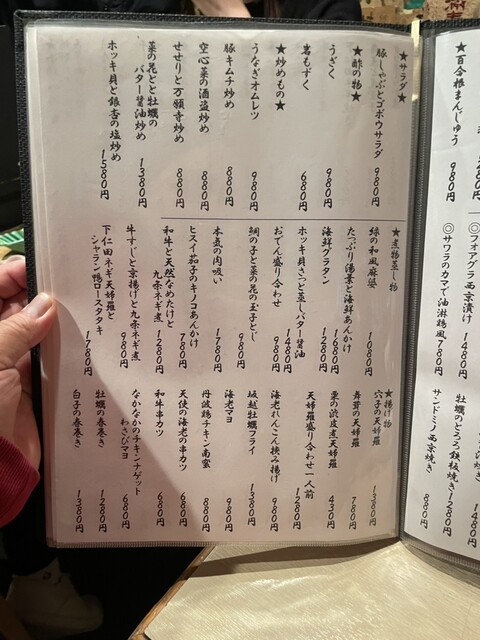 ★サラダ★
豚しゃぶとゴボウサラダ 980円
★酢の物★
うざく 980円
岩もずく 680円
★炒めもの★
うなぎオムレツ 980円
豚キムチ炒め 880円
空心菜の酒盗炒め 880円
せせりと万願寺炒め 880円
菜の花と牡蠣の
バター醤油炒め 1380円
ホッキ貝と銀杏の塩炒め 1580円
★煮物蒸し物
鰊の和風麻婆 1080円
たっぷり湯葉と海鮮あんかけ 1680円
海鮮グラタン 1280円
ホッキ貝さっと蒸しバター醤油 1480円
おでん盛り合わせ 980円
鯛の子と菜の花の玉子とじ 980円
本気の肉吸い 1780円
ヒスイ茄子のキノコあんかけ 780円
和牛と天然なめたけと
九条ネギ煮 1280円
牛すじと京揚げと九条ネギ煮 980円
下仁田ネギ天婦羅と
シャラン鴨ロースタタキ 1780円
★揚げ物
穴子の天婦羅 1380円
舞茸の天婦羅 780円
栗の渋皮煮天婦羅 430円
天婦羅盛り合わせ一人前 1280円
海老れんこん挟み揚げ 980円
坂越牡蠣フライ 1380円
海老マヨ 980円
丹波鶏チキン南蛮 880円
天使の海老の串カツ 680円
和牛串カツ 680円
なかなかのチキンナゲット
わさびマヨ 680円
牡蠣の春巻き 1280円
白子の春巻き 1380円
★百合根まんじゅう 980円
◎フォアグラ西京漬け 1480円
◎サワラのカマで油淋鶏風 780円
牡蠣のとろろ鉄板焼き 1280円
サンドミノ西京焼き 880円